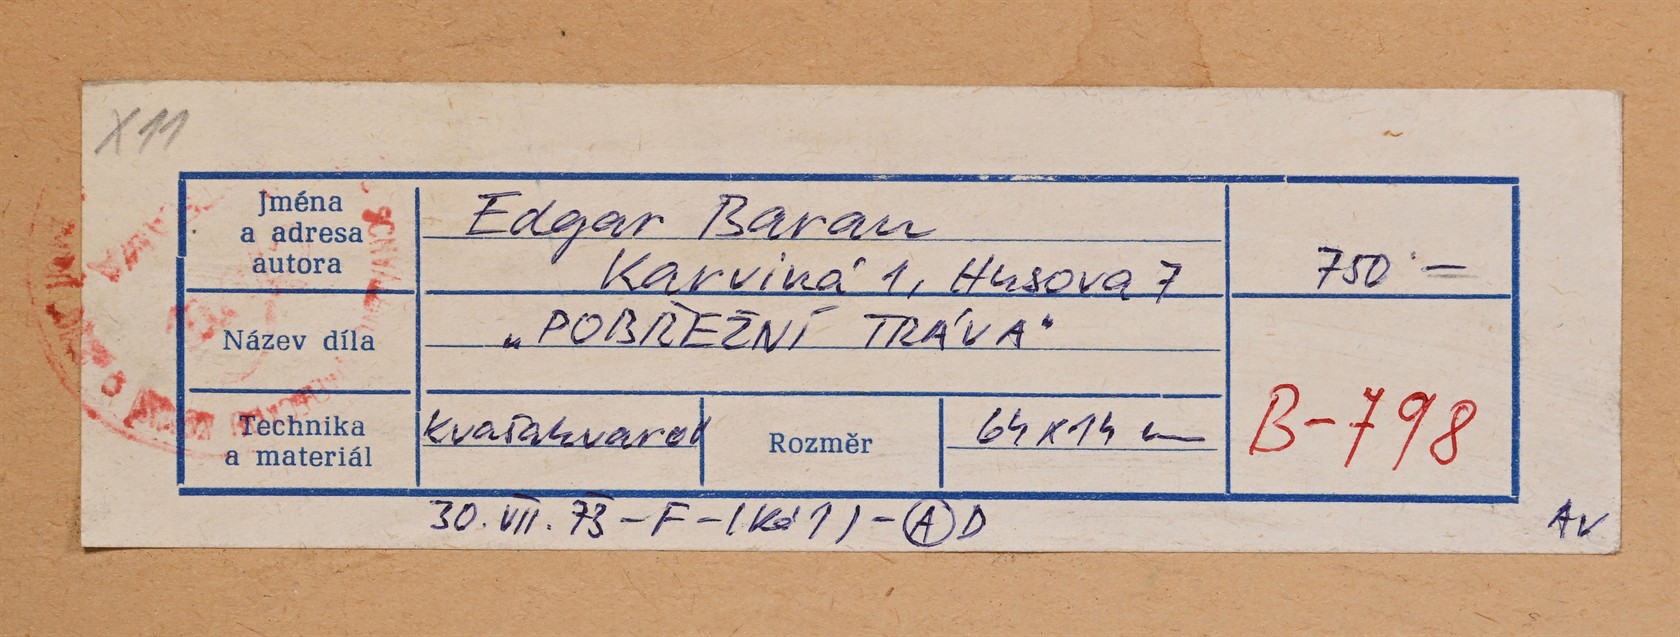 X11
Jména
a adresa
autora
Edgar Baran
Karviná 1, Husova 7
750 –
Název díla
„POBŘEŽNÍ TRÁVA"
Technika
a materiál
Rozměr
64 x 14
B-798
30. VII. 73 – F – (Ká 1) – A D
AV